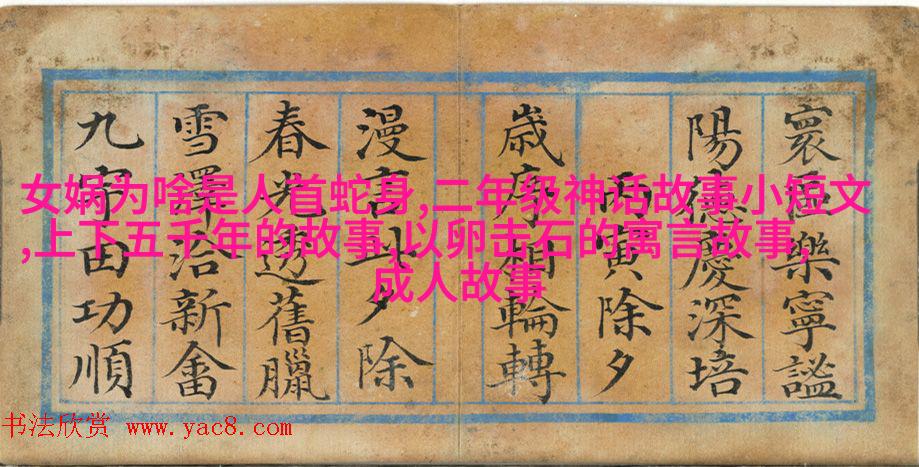 女娲为啥是人首蛇身,二年级神话故事小短文
,上下五千年的故事,以卵击石的寓言故事,
成人故事
寰區樂寧謐
陽德慶深培
丙寅除夕
歲序相輪轉
漫言此夕除
春光透舊臘
雪澤洽新畬
九宇田功順
书法欣赏 www.yac8.com